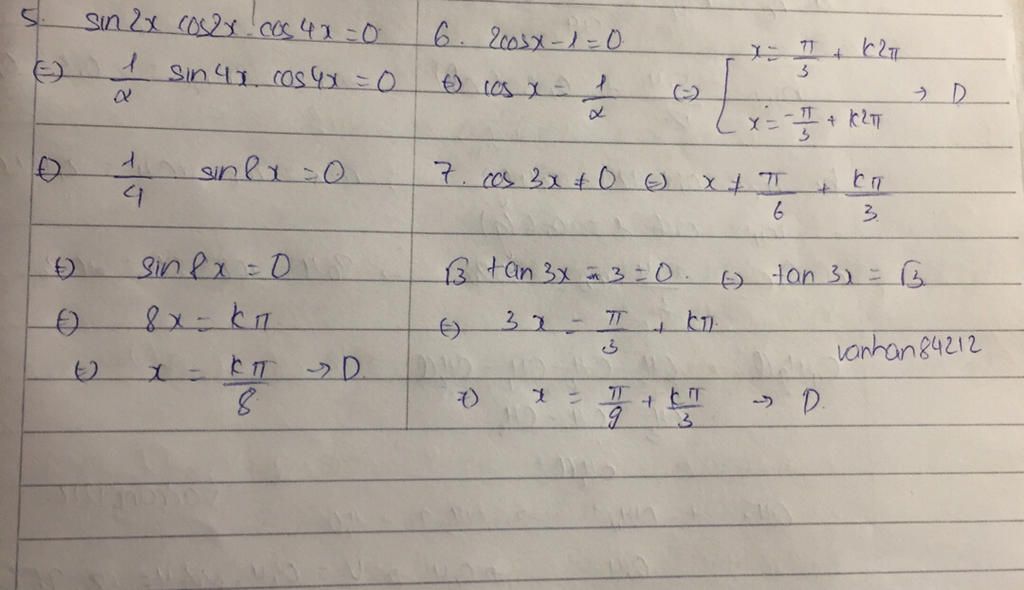 5. sin2x cos2x . cos4x = 0
⇔ 1/2 sin4x . cos4x = 0
⇔ 1/4 sin8x = 0
⇔ sin8x = 0
⇔ 8x = kπ
⇔ x = kπ/8 → D
6. 2cosx - 1 = 0
⇔ cos x = 1/2 ⇔ [ x = π/3 + k2π
x = -π/3 + k2π → D
7. cos 3x ≠ 0 ⇔ x ≠ π/6 + kπ/3
√3 tan 3x - 3 = 0 . ⇔ tan 3x = √3
⇔ 3x = π/3 + kπ
vanhan84212
⇔ x = π/9 + kπ/3 → D.